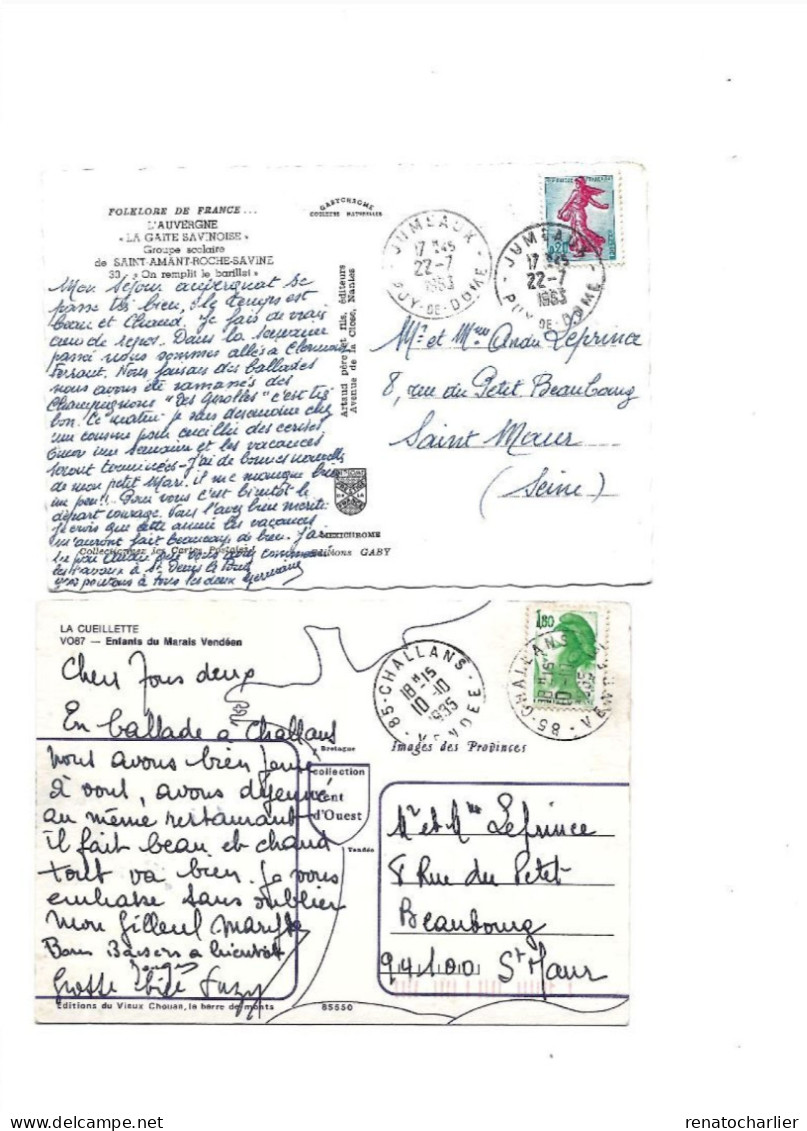 FOLKLORE DE FRANCE...
L'AUVERGNE
« LA GAITE SAVINOISE »
Groupe scolaire
de SAINT-AMANT-ROCHE-SAVINE
33. « On remplit le barillet »
GABYCHROME
COULEURS NATURELLES
JUMEAUX
17 H45
22-7
1963
PUY-DE-DOME
JUMEAUX
17 H45
22-7
1963
PUY-DE-DOME
0,20
Mon séjour auvergnat se
passe très bien, le temps est
beau et chaud. Je fais de vrais
cures de repos. Dans la semaine
passé nous sommes allés a Clermont
Ferrant. Nous faisons des ballades
nous avons été ramassés des
Champignons "Des Girolles" c'est très
bon. Ce matin je vais descendre chez
une cousine pour cueillir des cerises
Encor une semaine et les vacances
seront terminées - J'ai de bonnes nouvelles
de mon petit Mari. il me manque bien
un peu!! Pour vous c'est bientôt le
départ courage. Vous l'avez bien mérité
Je crois que cette année les vacances
m'auront fait beaucoup de bien. J'ai
Artaud père et fils, éditeurs
Avenue de la Close, Nantes
MEXICHROME
Collectionnez les Cartes Postales
Editions GABY
Mr et Mme André Leprince
8, rue du Petit Beaubourg
Saint Maur
(Seine)
LA CUEILLETTE
VO87 — Enfants du Marais Vendéen
85-CHALLANS
18 H15
10-10
VENDEE
1,80
85-CHALLANS
18 H15
10-10
VENDEE
Chers Tous deux
En ballade a Challans
nous avons bien pensé
à vous, avons déjeuné
au même restaurant
il fait beau et chaud
tout va bien. Je vous
embrasse sans oublier
mon filleul
Bons Baisers a bientôt
Grosse bise Suzy
Bretagne
collection
Vent
d'Ouest
Vendée
Images des Provinces
Mr et Mme Leprince
8 Rue du Petit
Beaubourg
94100 St Maur
Editions du Vieux Chouan, la barre de monts
85550
renatocharlier.com